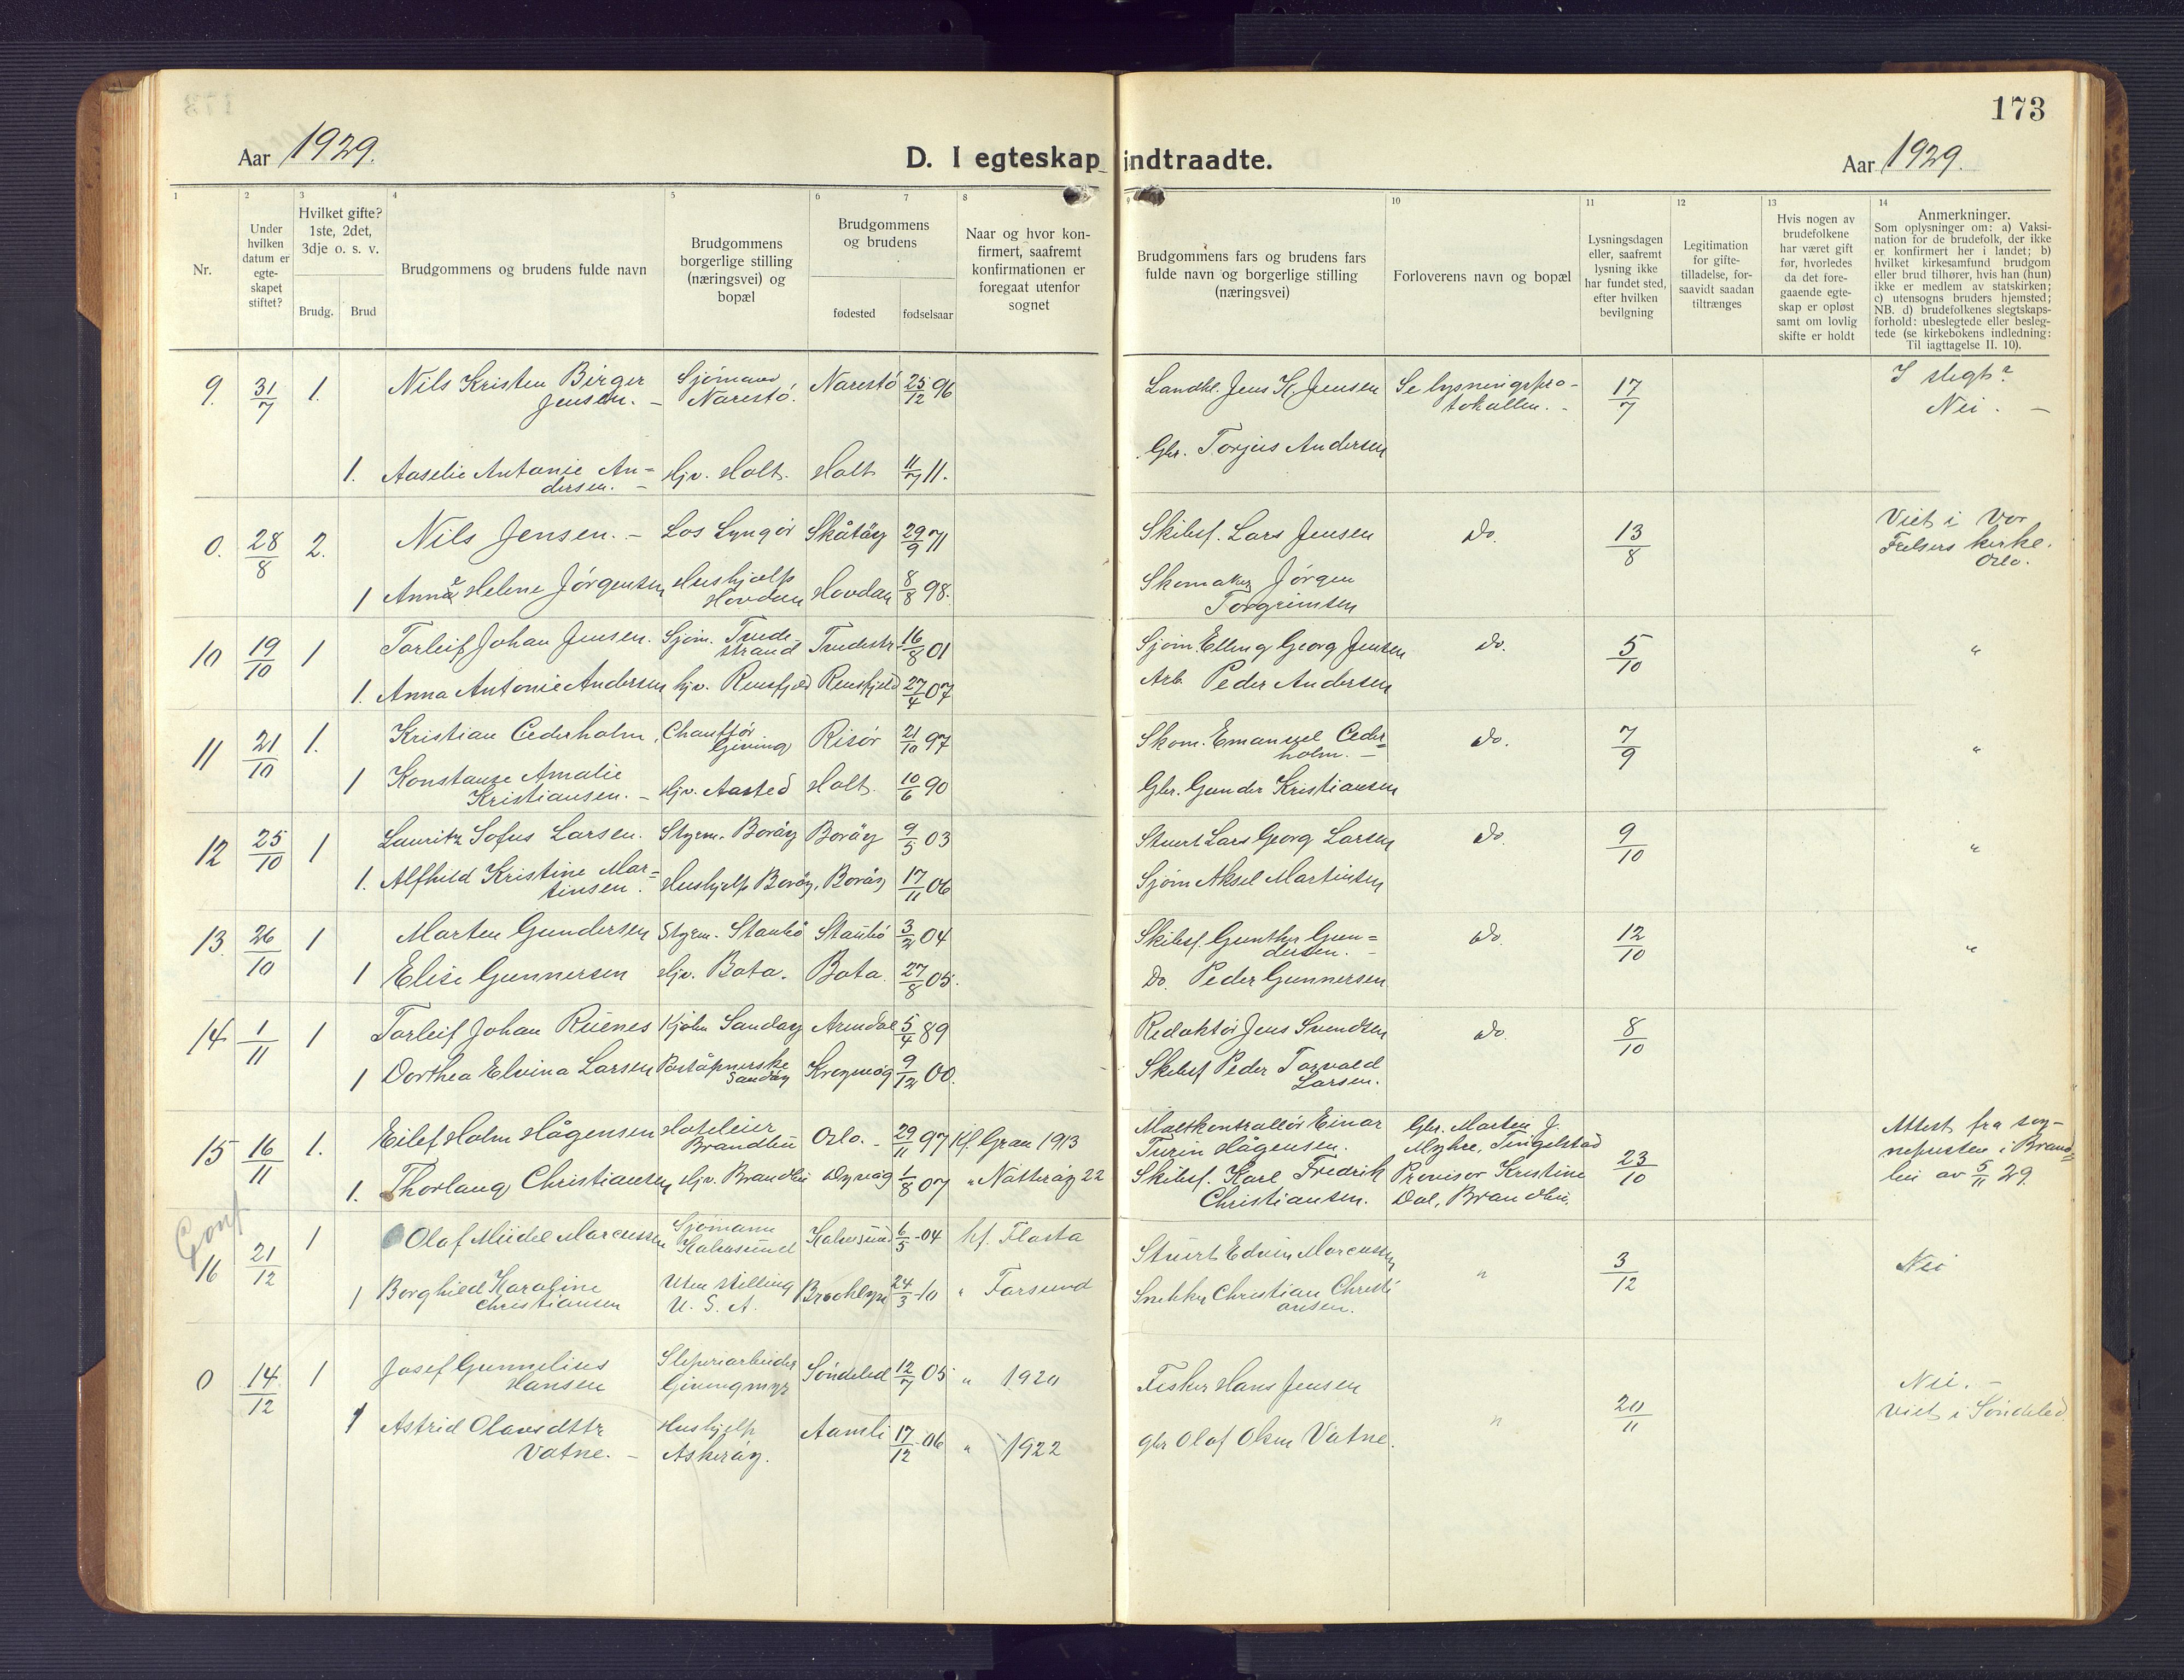 173
Aar 1929.
D. I egteskap indtraadte.
Aar 1929.
1 2 3 4 5 6 7 8 10 11 12 13 14
Nr.
Under hvilken datum er egte-skapet stiftet?
Hvilket gifte? 1ste, 2det, 3dje o. s. v.
Brudg. Brud
Brudgommens og brudens fulde navn
Brudgommens borgerlige stilling (næringsvei) og bopæl
Brudgommens og brudens
fødested fødselsaar
Naar og hvor kon-firmert, saafremt konfirmationen er foregaat utenfor sognet
Brudgommens fars og brudens fars fulde navn og borgerlige stilling (næringsvei)
Forloverens navn og bopæl
Lysningsdagen eller, saafremt lysning ikke har fundet sted, efter hvilken bevilgning
Legitimation for gifte-tilladelse, for-saavidt saadan tiltrænges
Hvis nogen av brudefolkene har været gift før, hvorledes da det fore-gaaende egte-skap er opløst samt om lovlig skifte er holdt
Anmerkninger.
Som oplysninger om: a) Vaksi-nation for de brudefolk, der ikke er konfirmert her i landet; b) hvilket kirkesamfund brudgom eller brud tilhører, hvis han (hun) ikke er medlem av statskirken; c) utensogns bruders hjemsted; NB. d) brudefolkenes slegtskaps-forhold: ubeslegtede eller beslegtede (se kirkebokens indledning: Til iagttagelse II. 10).
9. 31/7 1. Nils Kristen Birger Jensen. – Sjømann Narestø. Narestø 25/12 96 Landhl. Jens K. Jensen Se lysningspro-tokollen. – 17/7 I slegt? Nei. –
1. Aaselie Antonie An=dersen. – Hjv. Holt. Holt 11/7 11. Gbr. Torjus Andersen
0. 28/8 2. Nils Jensen. – Los Lyngør Skåtøy 29/9 71 Skibsf. Lars Jensen Do. 13/8 Viet i Vor Frelsers kirke. Oslo.
1 Anna Helene Jørgensen Hushjelp Hovdan Hovdan 8/8 98. Skomaker Jørgen Torgrimsen
10 19/10 1 Torleif Johan Jensen. Sjøm. Tvede-strand Tvedestr. 16/8 01 Sjøm. Elling Georg Jensen Do. 5/10 "
1. Anna Antonie Andersen hjv. Rensfjeld Rensfjeld 27/4 07 Arb. Peder Andersen
11 21/10 1. Kristian Cederholm, Chauffør Giving Risør 21/10 97 Skom. Emanuel Ceder=holm. – Do. 7/9 "
1 Konstanse Amalie Kristiansen. – Hjv. Aasted Holt. 10/6 90 Gbr. Gunder Kristiansen
12 25/10 1 Lauritz Sofus Larsen. Styrm. Borøy Borøy 9/5 03 Stuert Lars Georg Larsen Do. 9/10 "
1. Alfhild Kristine Mar=tinsen. Hushjelp Borøy, Borøy 17/11 06 Sjøm Aksel Martinsen
13. 26/10 1 Marten Gundersen Styrm. Staubø Staubø 3/2 04 Skibsf. Gunther Gun=dersen. – Do. 12/10 "
1 Elise Gunnersen Hjv. Bota. Bota. 27/8 05. Do. Peder Gunnersen
14 1/11 1 Torleif Johan Ruenes Kjøbm Sandøy Arendal 5/4 89 Redaktør Jens Svendsen Do. 8/10
1 Dorthea Elvina Larsen Poståpnerske Sandøy 9/12 00. Skibsf Peder Torvald Larsen.
15 16/11 1. Eilef Holm Hågensen Hoteleier Brandbu Oslo. – 29/11 97 Kf. Gran 1913 Maltkontrollør Einar Hågensen. Gbr. Marten J. Myhre, Tingelstad 23/10 Attest fra sog-nepresten i Brand=bu av 5/11 29.
1. Thorlaug Christiansen, Hjv. Brandbu Dypvåg 1/8 07 " Nøtterøy 22 Skibsf. Karl Fredrik Christiansen. Provisor Kristine Dal, Brandbu.
16 21/12 1 Olaf Marcussen Sjømann Kalvesund Kalvesund 6/5 -04 kf. Flosta Stuert Edvin Marcussen " 3/12 Nei
1 Borghild Karoline Christiansen Uten stilling U. S. A. Brooklyn 24/3 -10 " Farsund Snekker Christian Christiansen.
0 14/12 1 Josef Gunnelius Hansen Sliperiarbeider Givingmyr Søndeled 12/7 05 " 1920 Fisker Hans Jensen " 20/11 Nei. – Viet i Søndeled.
1 Astrid Olavsdttr Vatne. – Hushjelp Askerøy. Aamli 17/12 -06 " 1922 gbr Olaf Olsen Vatne.